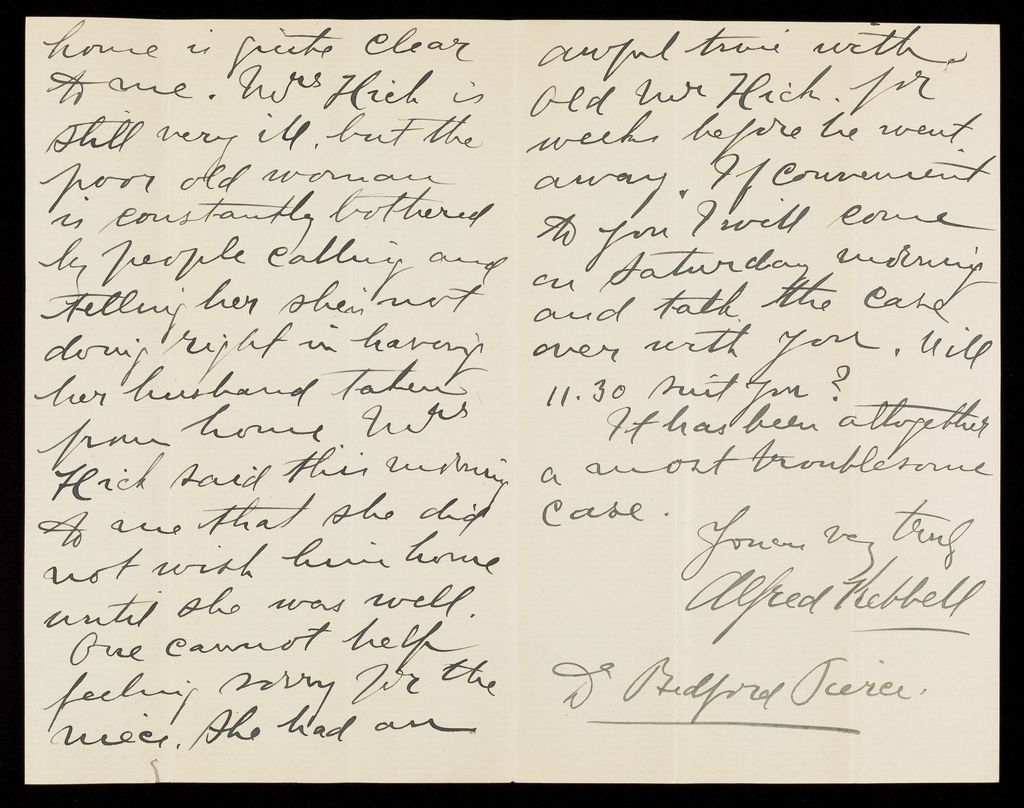 home is quite clear
to me. Mrs Hick is
still very ill, but the
poor old woman
is constantly bothered
by people calling and
telling her she is not
doing right in having
her husband taken
from home. Mrs
Hick said this morning
to me that she did
not wish him home
until she was well.
One cannot help
feeling sorry for the
niece. She had an
awful time with
old Mr Hick. for
weeks before he went
away. If convenient
to you I will come
on Saturday morning
and talk the case
over with you. Will
11.30 suit you?
It has been altogether
a most troublesome
case.
Yours very truly
Alfred Kebbell
Dr Bedford Pierce.